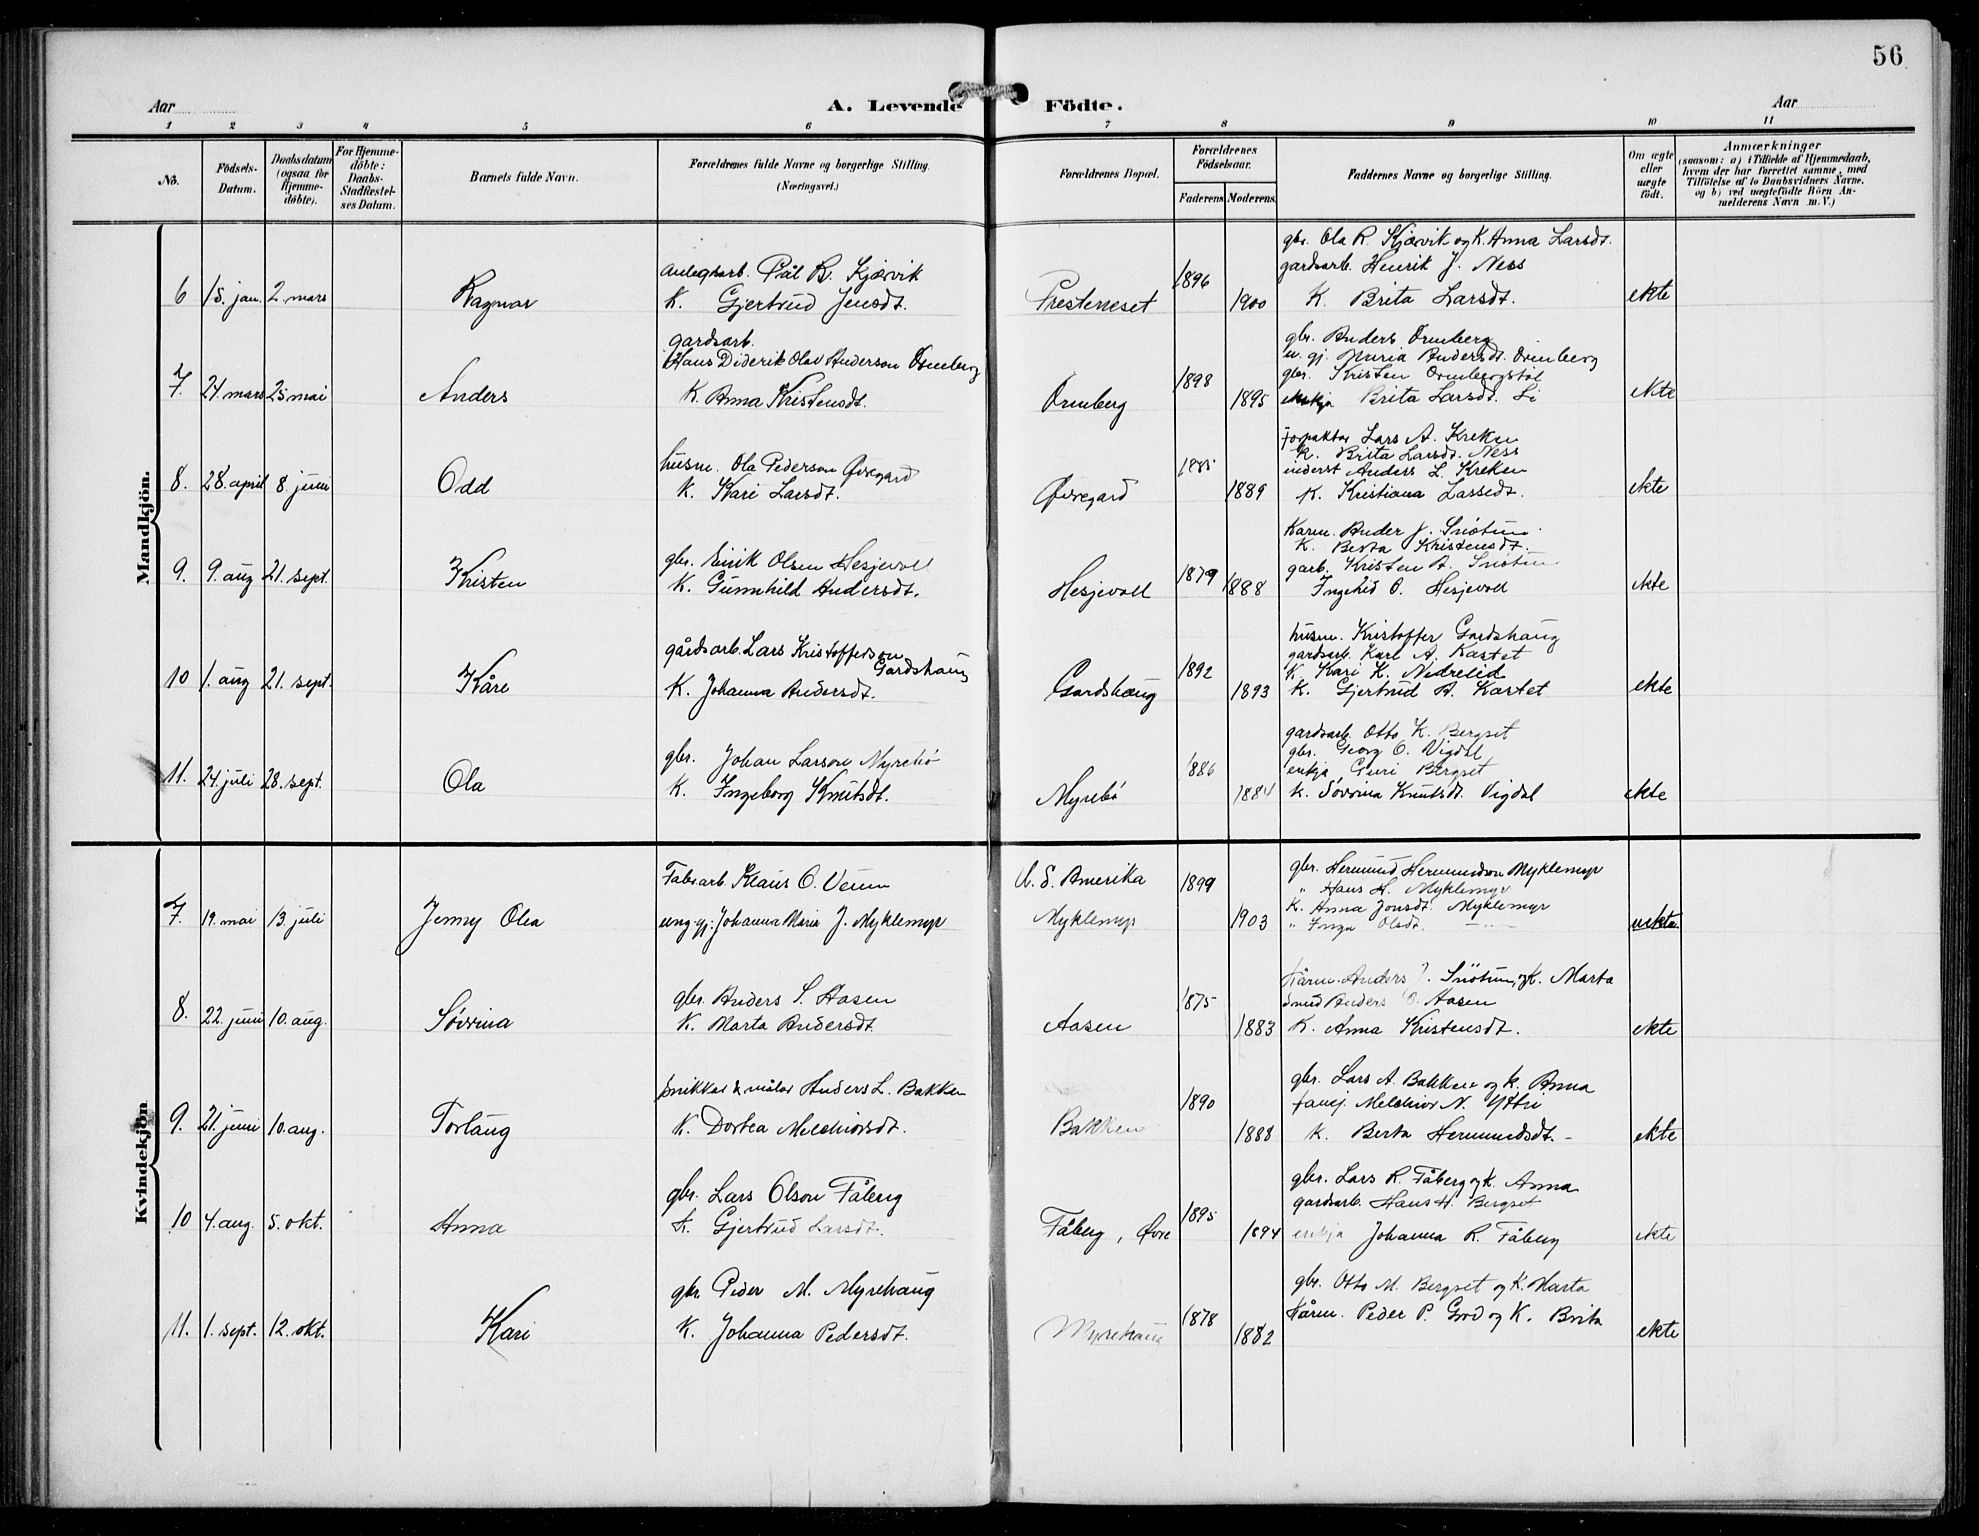 56
Aar A. Levende Födte. Aar
1 2 3 4 5 6 7 8 9 10 11
No. Födsels-Datum. Daabsdatum (ogsaa for Hjemme-döbte). For Hjemme-döbte: Daabs-Stadfæstel-ses Datum. Barnets fulde Navn. Forældrenes fulde Navne og borgerlige Stilling. (Næringsvei.) Forældrenes Bopæl. Forældrenes Födselsaar. Faderens Moderens Faddernes Navne og borgerlige Stilling. Om ægte eller uægte födt. Anmærkninger (saasom: a) i Tilfælde af Hjemmedaab, hvem der har forrettet samme, med Tilföielse af to Daabsvidners Navne, og b) ved uægtefödte Börn An-melderens Navn m. V.)
Mandkjön.
gbr. Ola R. Kjærvik og K. Anna Larsdt.
anlegsarb. Pål R. Kjærvik 1896 gardsarb. Henrik J. Ness
6 15. jan. 2. mars Ragnar K. Gjertrud Jensdt. Presteneset 1900 K. Brita Larsdt. ekte
gardsarb. gbr. Anders Ormberg
Hans Diderik Olav Anderson Ormberg u. gj. Maria Andersdt. Ormberg
1898 gbr. Kristen Ormbergstøl
7. 24. mars 25 mai Anders K. Anna Kristensdt. Ormberg 1895 enkja Brita Larsdt. Li ekte
forpaktar Lars A. Kreken
husm. Ola Pederson Øvregard 1885 K. Brita Larsdt. Ness
inderst Anders L. Kreken
8. 28. april 8. juni Odd K. Kari Larsdt. Øvregard 1889 K. Kristiana Lassedt. ekte
Kårm. Ander J. Snøtun
K. Berta Kristensdt.
gbr. Eirik Olsen Hesjevoll 1879 garb. Kristen A. Snøtun
9. 9. aug 21. sept. Kristen K. Gunnhild Andersdt. Hesjevoll 1888 Ingebid O. Hesjevoll ekte
husm. Kristoffer Gardshaug
gårdsarb. Lars Kristofferson Gardshaug 1892 gardsarb. Karl A. Kastet
K. Kari K. Nedrelid
10 1. aug 21. sept. Kåre K. Johanna Andersdt. Gardshaug 1893 K. Gjertrud A. Kastet ekte
gardsarb. Otto K. Bergset
gbr. Johan Larson Myrebø 1886 gbr. Georg O. Vigdal
enkja Guri Bergset
11. 24. juli 28. sept. Ola K. Ingeborg Knutsdt. Myrebø 1884 K. Søvrina Knutsdt. Vigdal ekte
Kvindekjön
Fabr.arb. Klaus O. Veum U. S. Amerika 1899 gbr. Hermund Hermundson Myklemyr
" Hans H. Myklemyr
K. Anna Jonsdt. Myklemyr
7. 19. mai 13. juli Jenny Olea ung. gj: Johanna Maria J. Myklemyr Myklemyr 1903 " Inga Olsdt. —"— uekte
Kårm. Anders J. Snøtun og K. Marta
gbr. Anders S. Aasen 1875 smed Anders O. Aasen
8. 22. juni 10. aug. Søvrina K. Marta Andersdt. Aasen 1883 K. Anna Kristensdt. ekte
gbr. Lars A. Bakken og K. Anna
snikkar & målar Anders L. Bakken 1890 Melchior N. Ytri
9. 21. juni 10. aug. Torlaug K. Dortea Melchiorsdt. Bakken 1888 K. Berta Hermundsdt. – ekte
gbr. Lars R. Fåberg og K. Anna
gbr. Lars Olson Fåberg 1895 gardsarb. Hans H. Bergset
10 4. aug. 5. okt. Anna K. Gjertrud Larsdt. Fåberg, Øvre 1894 enkja Johanna R. Fåberg ekte
gbr. Otto M. Bergset og K. Marta
gbr. Peder M. Myrehaug 1878 Kårm. Peder P. Grod og K. Brita
11. 1. sept. 12. okt. Kari K. Johanna Pedersdt. Myrehaug 1882 ekte